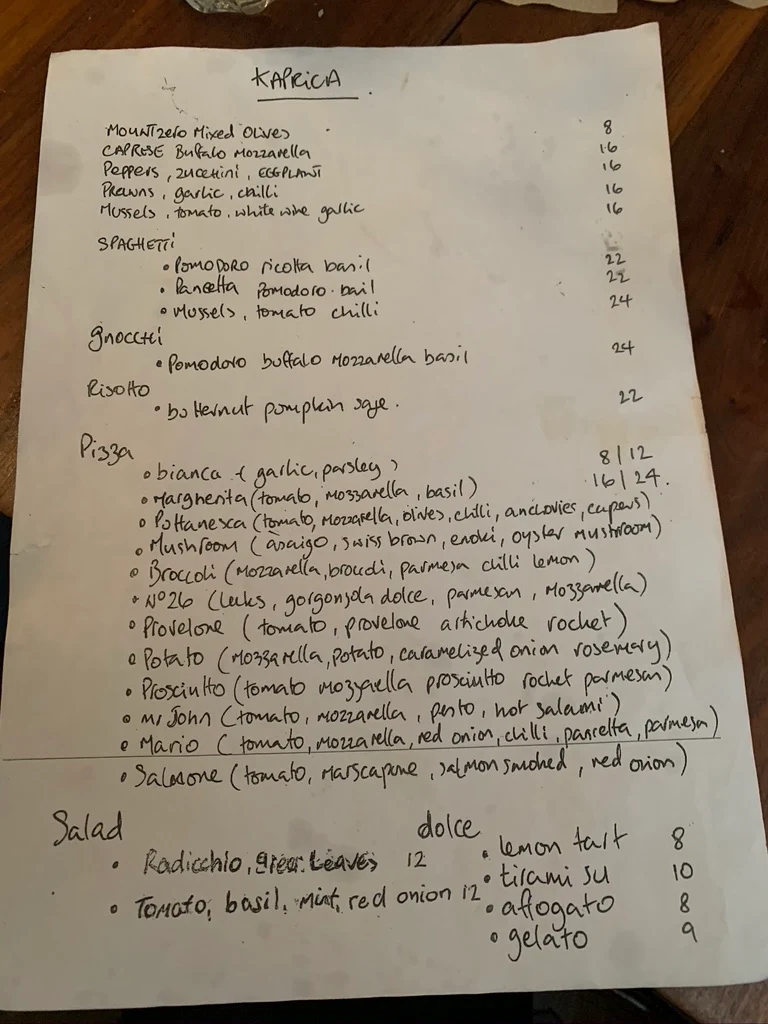 KAPRICA
MOUNTzero Mixed Olives 8
CAPRESE Buffalo Mozzarella 16
Peppers, zucchini, EGGPLANT 16
Prawns, garlic, chilli 16
Mussels, tomato, white wine garlic 16
SPAGHETTI
• POMODORO ricotta basil 22
• Pancetta Pomodoro basil 22
• Mussels, tomato chilli 24
Gnocchi
• Pomodoro buffalo Mozzarella basil 24
Risotto
• butternut pumpkin sage. 22
Pizza
• bianca (garlic, parsley) 8 | 12
• Margherita (tomato, mozzarella, basil) 16 | 24.
• Pottanesca (tomato, Mozzarella, olives, chilli, anchovies, capers)
• Mushroom (asaigo, swiss brown, enoki, oyster mushroom)
• Broccoli (Mozzarella, brocoli, parmesa chilli lemon)
• No26 (leeks, gorgonzola dolce, parmesan, Mozzarella)
• Provelone (tomato, provelone artichoke rocket)
• Potato (Mozzarella, potato, caramelized onion rosemary)
• Prosciutto (tomato mozzarella prosciutto rocket parmesan)
• Mr John (tomato, mozzarella, pesto, hot salami)
• Mario (tomato, mozzarella, red onion, chilli, pancetta, parmesa)
• Salmone (tomato, Marscapone, salmon smoked, red onion)
Salad
• Radicchio, green Leaves 12
• Tomato, basil, Mint, red onion 12
dolce
• lemon tart 8
• tirami su 10
• affogato 8
• gelato 9